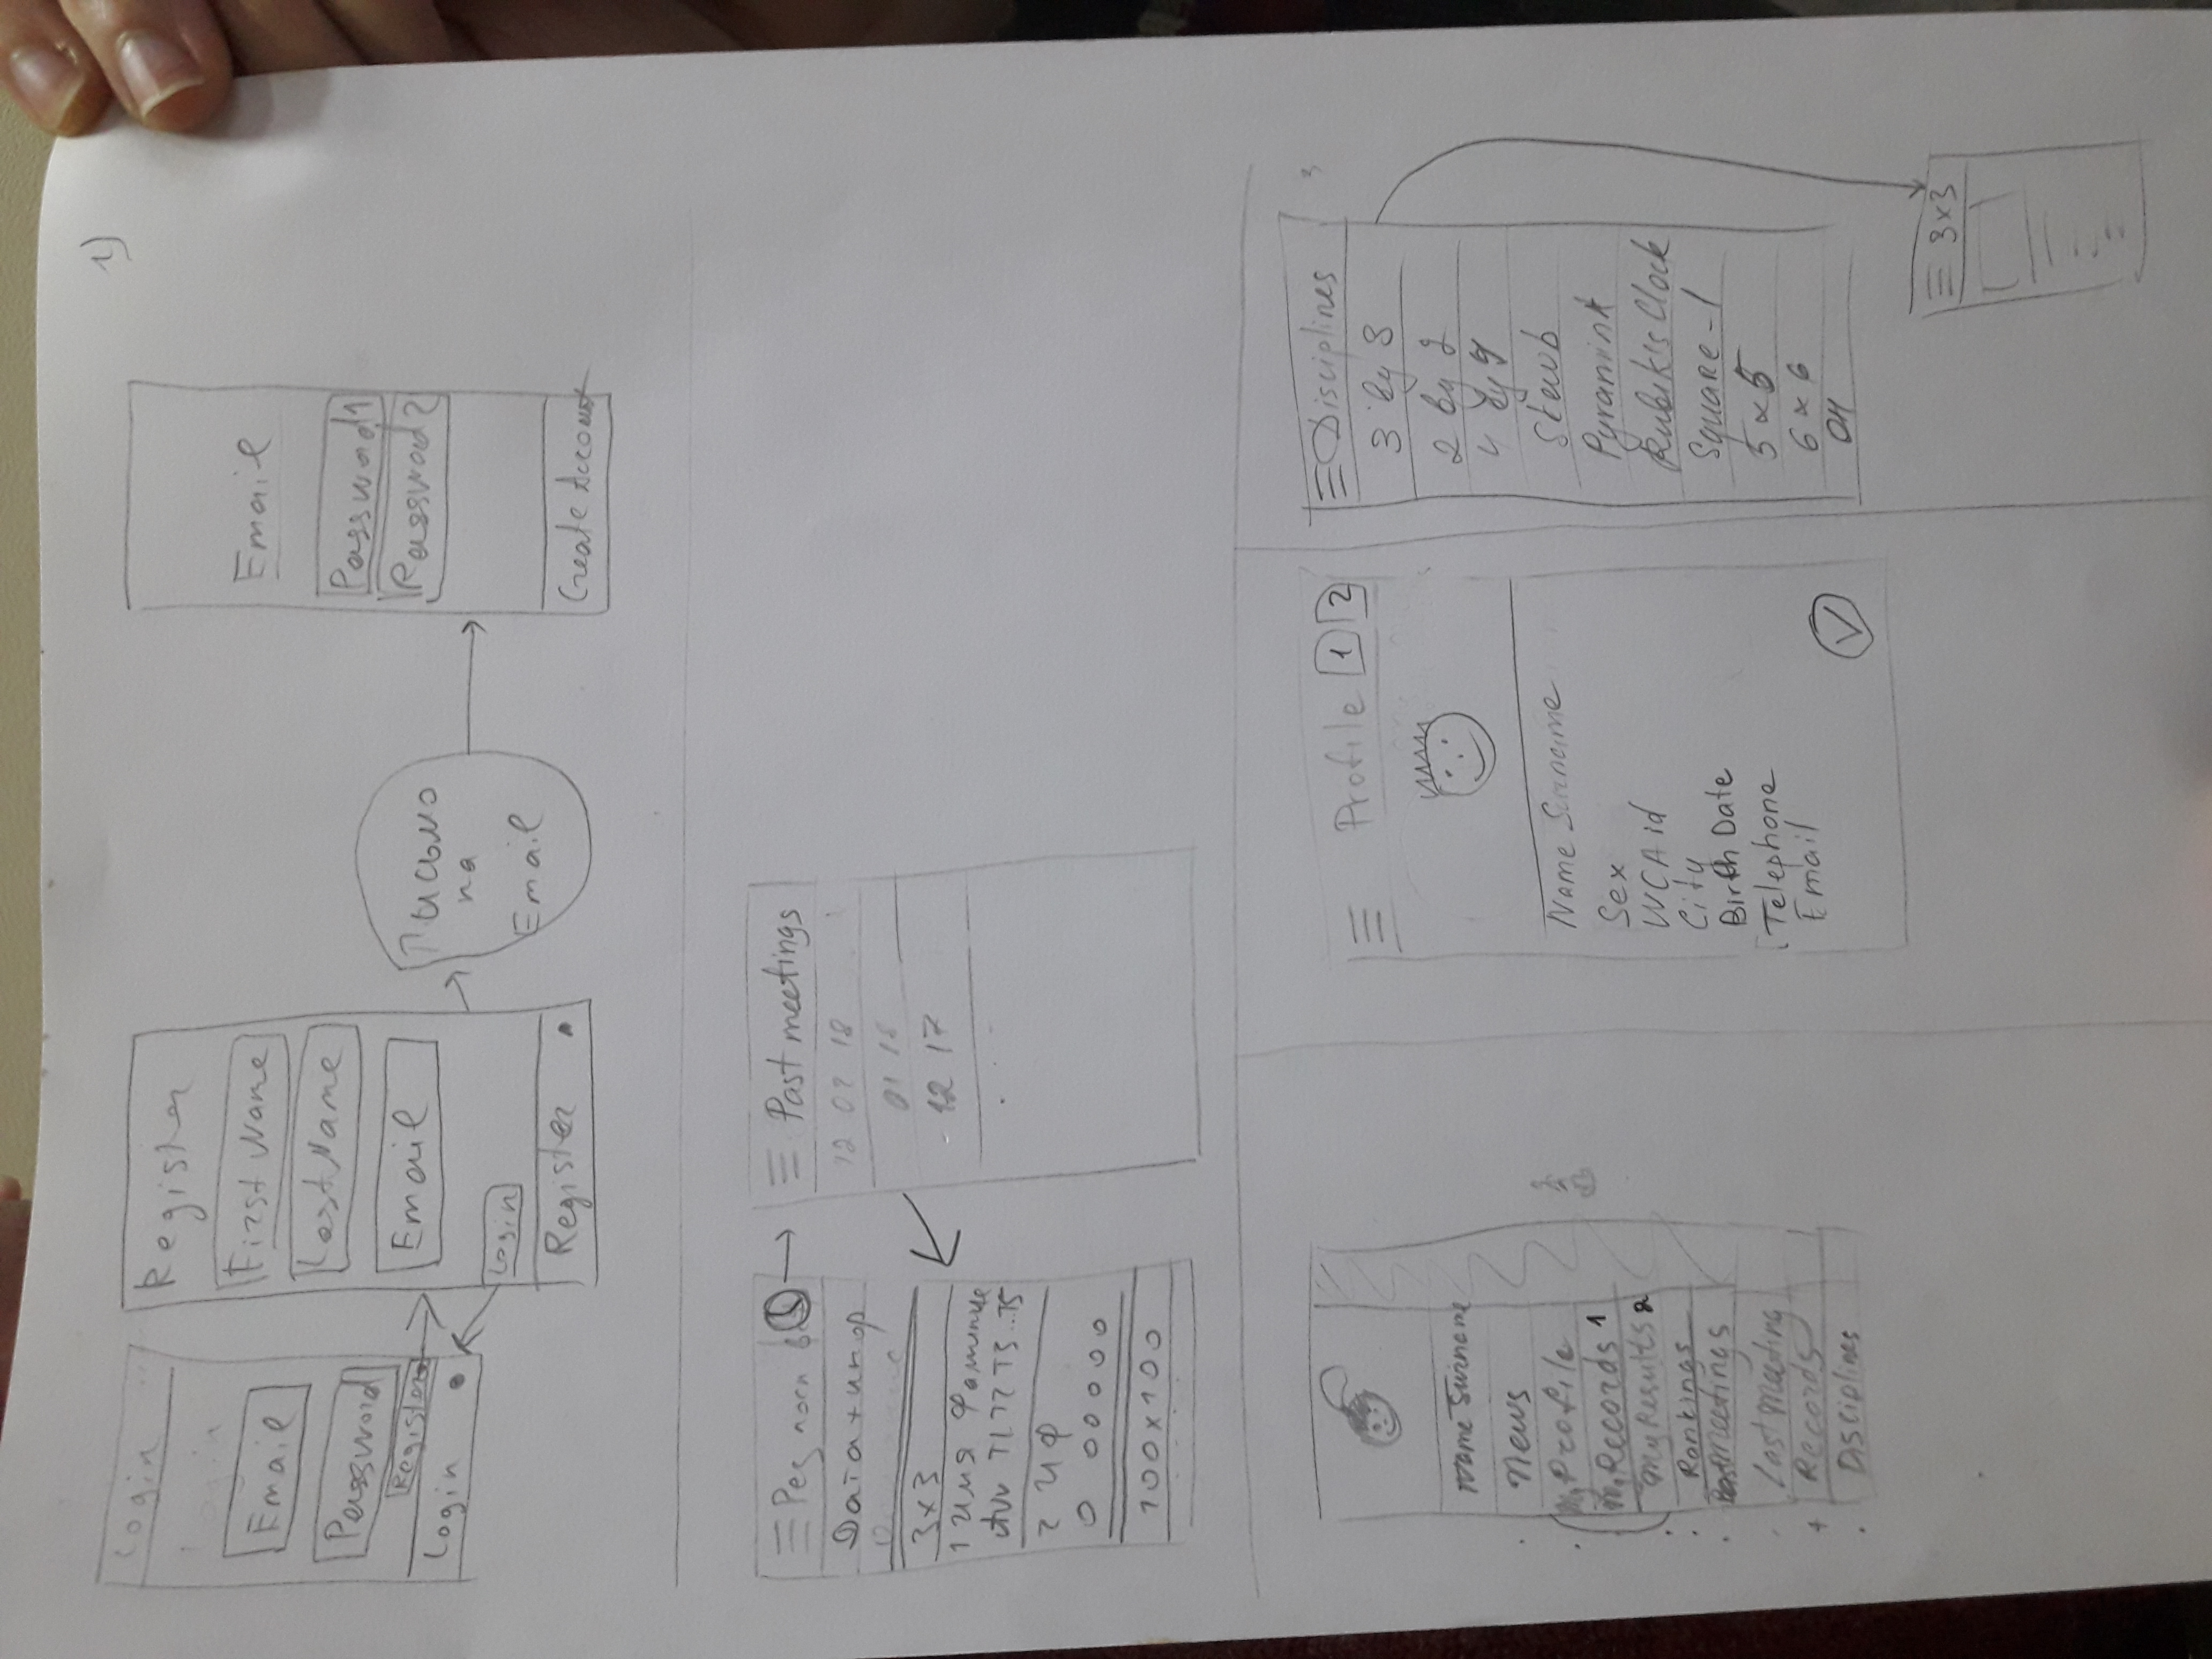 1)
Login
Login
Email
Password
Register
Login
Register
First Name
Last Name
Email
Login
Register
Письмо
на
Email
Email
Password1
Password2
Create Account
Рез посл
Дата + инфр
3x3
1 Имя Фамилия
Avv T1 T2 T3..T5
2 И Ф
0 00000
100x100
Past meetings
12 02 18
01 18
12 17
Name Surname
News
My Profile
My Records 1
My Results 2
Rankings
Past Meetings
Last Meeting
+ Records
Disciplines
Profile 1 2
Name Surname
Sex
WCA id
City
Birth Date
Telephone
Email
Disciplines
3 by 3
2 by 2
4 by 4
Skewb
Pyramink
Rubik's Clock
Square-1
5x5
6x6
OH
3x3